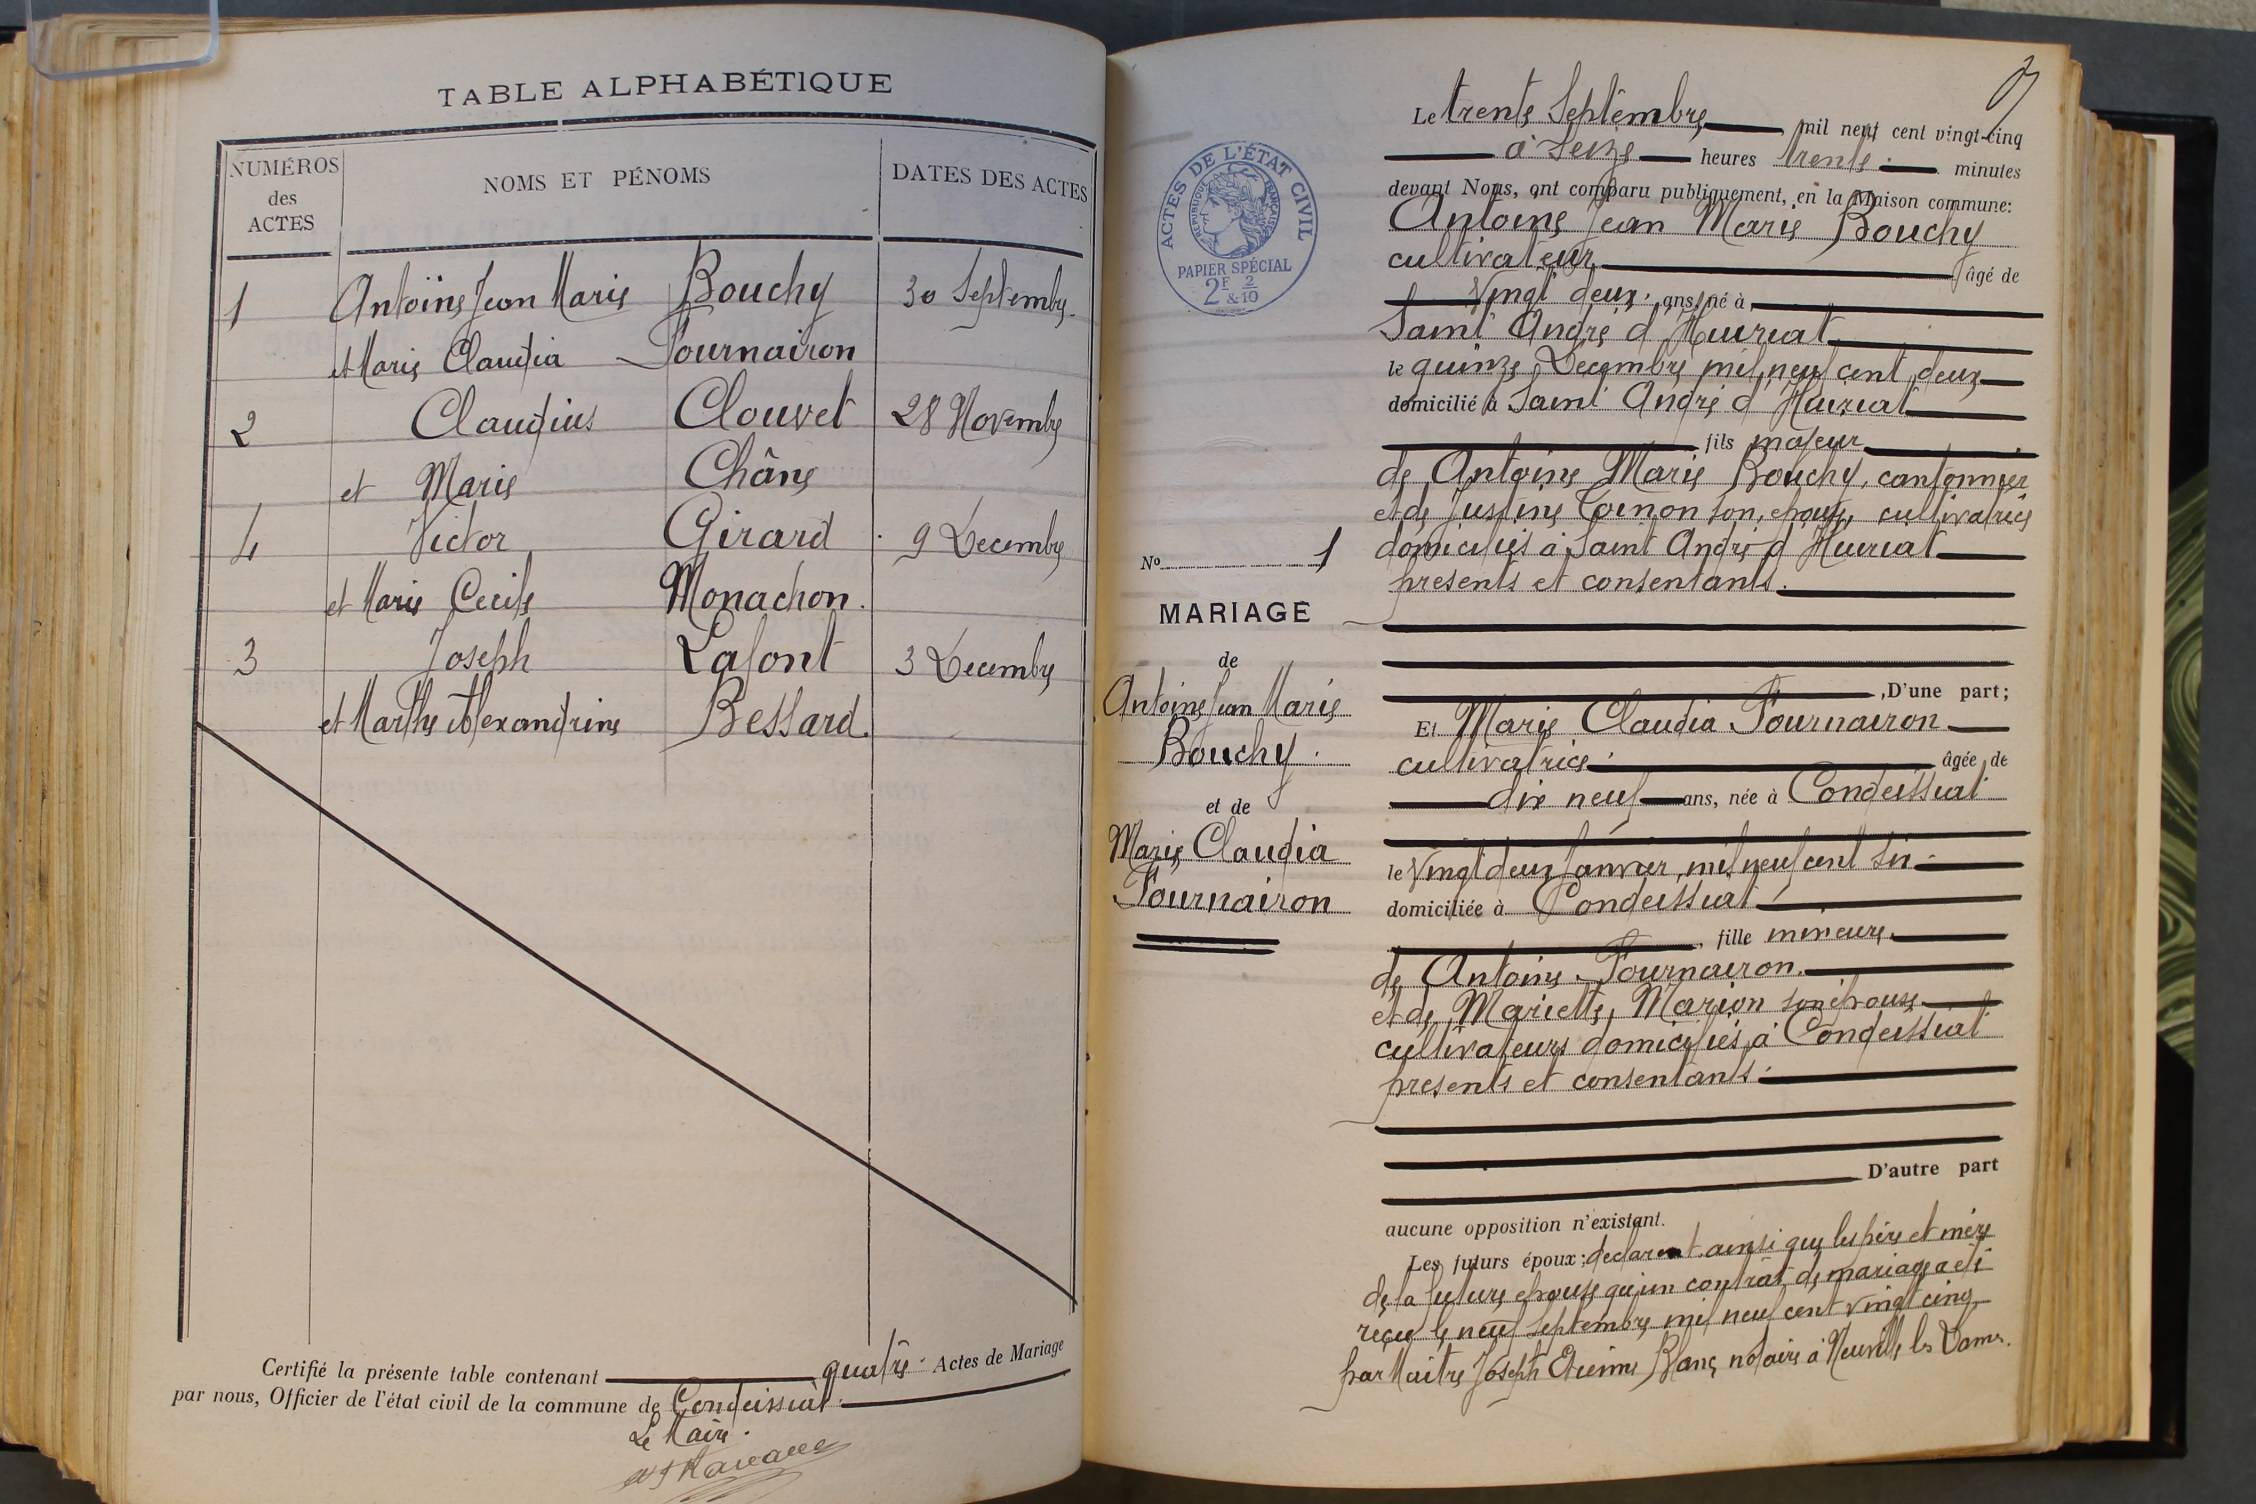 TABLE ALPHABÉTIQUE
NUMÉROS des ACTES
NOMS ET PÉNOMS
DATES DES ACTES
1 Antoine Jean Marie Bouchy 30 Septembre
et Marie Claudia Fournairon
2 Claudius Clouvet 28 Novembre
et Marie Châne
4 Victor Girard 9 Decembre
et Marie Cecile Monachon.
3 Joseph Lafont 3 Decembre
et Marthe Alexandrine Bessard.
Certifié la présente table contenant quatre Actes de Mariage
par nous, Officier de l'état civil de la commune de Condeissiat
Le Maire.
ACTES DE L'ÉTAT CIVIL
RÉPUBLIQUE FRANÇAISE
PAPIER SPÉCIAL
2F & 2/10
No 1
MARIAGE
de
Antoine Jean Marie
Bouchy.
et de
Marie Claudia
Fournairon
Le trente Septembre mil neuf cent vingt-cinq
à Seize heures trente minutes
devant Nous, ont comparu publiquement, en la Maison commune:
Antoine Jean Marie Bouchy
cultivateur âgé de
Vingt deux ans, né à
Saint André d'Huiriat
le quinze Decembre mil neuf cent deux
domicilié à Saint André d'Huiriat
fils majeur
de Antoine Marie Bouchy, cantonnier
et de Justine Toinon son epouse, cultivatrice
domiciliés à Saint André d'Huiriat
presents et consentants.
D'une part;
Et Marie Claudia Fournairon
cultivatrice âgée de
dix neuf ans, née à Condeissiat
le Vingt deux Janvier mil neuf cent six
domiciliée à Condeissiat
fille mineure
de Antoine Fournairon
et de Mariette Marion son épouse
cultivateurs domiciliés à Condeissiat
presents et consentants.
D'autre part
aucune opposition n'existant.
Les futurs époux; declarent ainsi que les père et mère
de la future epouse qu'un contrat de mariage a été
reçu le neuf Septembre mil neuf cent vingt cinq
par Maitre Joseph Etienne Blanc notaire à Neuville les Dames.